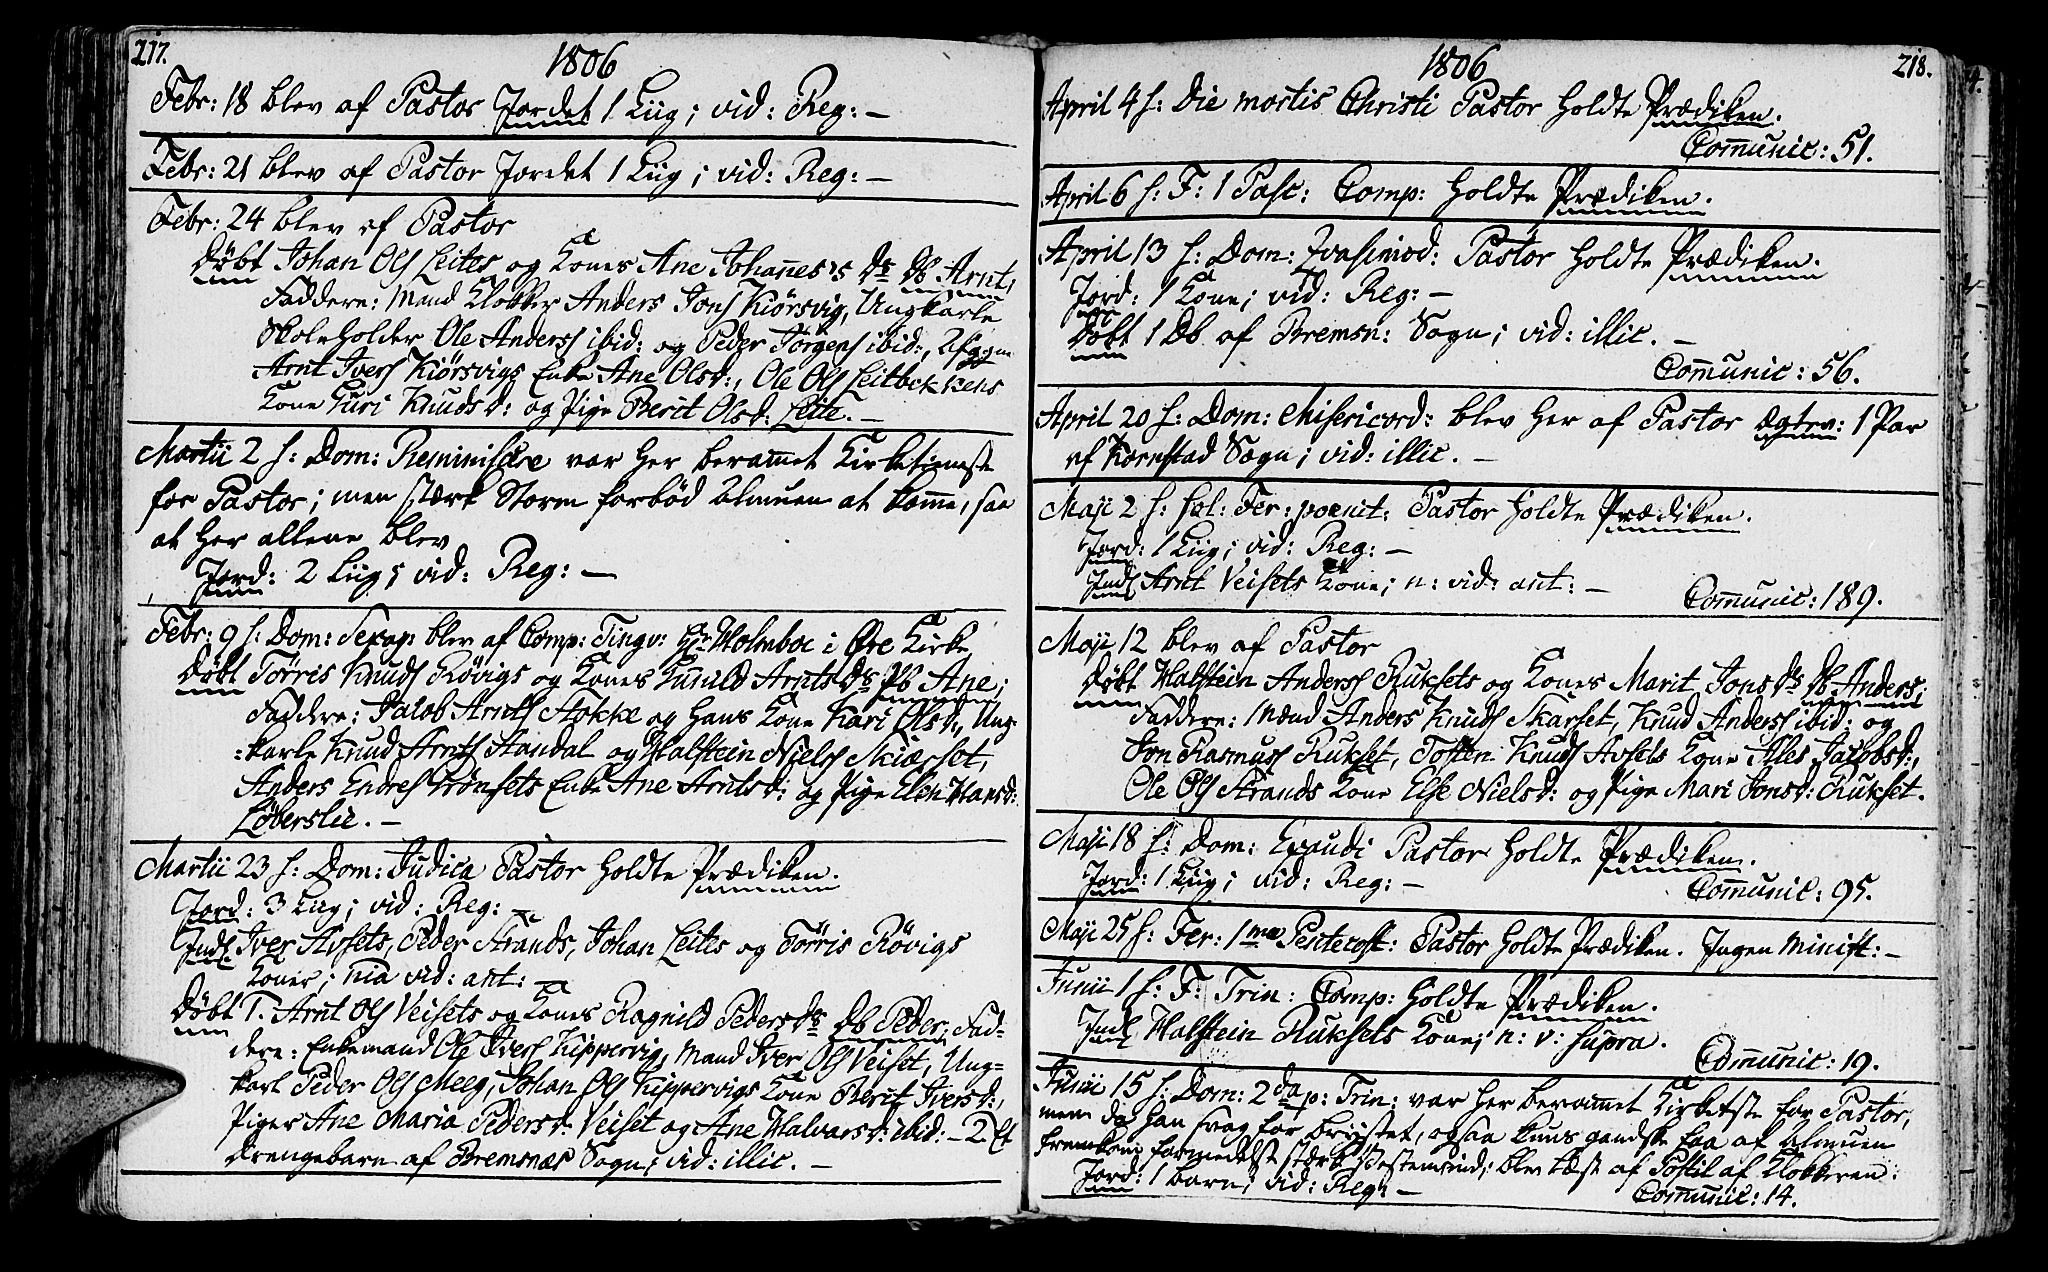 217.
1806
Febr: 18 blev af Pastor Jordet 1 Liig; vid: Reg: —
Febr: 21 blev af Pastor Jordet 1 Liig; vid: Reg: —
Febr: 24 blev af Pastor
Døbt Johan Ols Leites og Kones Ane Johannes's Ds Db Arnt,
Faddere: Mand Klokker Anders Jons Kiörsvig, Ungkarle
Skoleholder Ole Anders ibid: og Peder Jörgens ibid:,
Arnt Ivers Kiörsvigs Enke Ane Olsd:, Ole Ols Leitbekkens
Kone Guri Knudsd: og Pige Berit Olsd: Leite. —
Martii 2 s: Dom: Reminiscere var her berammet Kirketieneste
for Pastor; men stærk Storm forbød Almuen at komme, saa
at her allene blev
Jord: 2 Liig; vid: Reg: —
Febr: 9 s: Dom: Sexag blev af Comp: Tingv: Hr Holmboe i Øre Kirke
Døbt Törris Knuds Rövigs og Kones Gunild Arnts Ds Pb Ane;
Faddere: Jacob Arnts Stokke og hans Kone Kari Olsd:, Ung-
karle Knud Arnts Standal og Halstein Niels Skiærset,
Anders Endres Grönsets Enke Ane Arntsd: og Pige Elen Hansd:
Löberslie. —
Martii 23 s: Dom: Judica Pastor holdte Prædiken.
Jord: 3 Liig; vid: Reg: —
Indl. Iver Avsets, Peder Strands, Johan Leites og Törris Rövigs
Koner; nia vid: ant: —
Døbt T. Arnt Ols Veisets og Kones Ragnild Peders Ds Db Peder; Fad-
dere: Enkemand Ole Ivers Kippervig, Mand Iver Ols Veiset, Ung-
karl Peder Ols Meeg, Johan Ols Kippervigs Kone Berit Iversd:,
Piger Ane Maria Pedersd: Veiset og Ane Halvarsd: ibid: — 2
Drengebørn af Bremsnæs Sogn; vid: illic. —
1806
218.
April 4 s: Die mortis Christi Pastor holdte Prædiken.
Communic: 51.
April 6 s: F: 1 Pasc: Comp: holdte Prædiken.
April 13 s: Dom: Qvasimod: Pastor holdte Prædiken.
Jord: 1 Kone; vid: Reg: —
Døbt 1 Db af Bremsn: Sogn; vid: illic. —
Communic: 56.
April 20 s: Dom: Misericord: blev her af Pastor Ægtev: 1 Par
af Kornstad Sogn; vid: illic. —
Maji 2 s: sol: Fer: poenit: Pastor holdte Prædiken.
Jord: 1 Liig; vid: Reg: —
Indl Arnt Veisets Kone; n: vid: ant: —
Communic: 189.
Maji 12 blev af Pastor
Døbt Halstein Anders Rüksets og Kones Marit Jons Ds Db Anders;
Faddere: Mænd Anders Knuds Skarset, Knud Anders ibid: og
Jon Rasmus Rukset, Tosten Knuds Avsets Kone Ales Jacobsd:,
Ole Ols Strands Kone Else Nielsd: og Pige Mari Jonsd: Rukset.
Maji 18 s: Dom: Exaudi Pastor holdte Prædiken.
Jord: 1 Liig; vid: Reg: —
Communic: 95.
Maji 25 s: Fer: 1ma Pentecost: Pastor holdte Prædiken. Ingen Minist: —
Junii 1 s: F: Trin: Comp: holdte Prædiken.
Indl Halstein Ruksets Kone; n: v: supra.
Communic: 19.
Junii 15 s: Dom: 2da p: Trin: var her berammet Kirketste for Pastor,
men da han svag for Brystet, ogsaa kuns gandske faa af Almuen
fremkom formedelst stærk Vestenvind; blev læst af Postil af Klokkeren:
Jord: 1 barn; vid: Reg: —
Communic: 14.